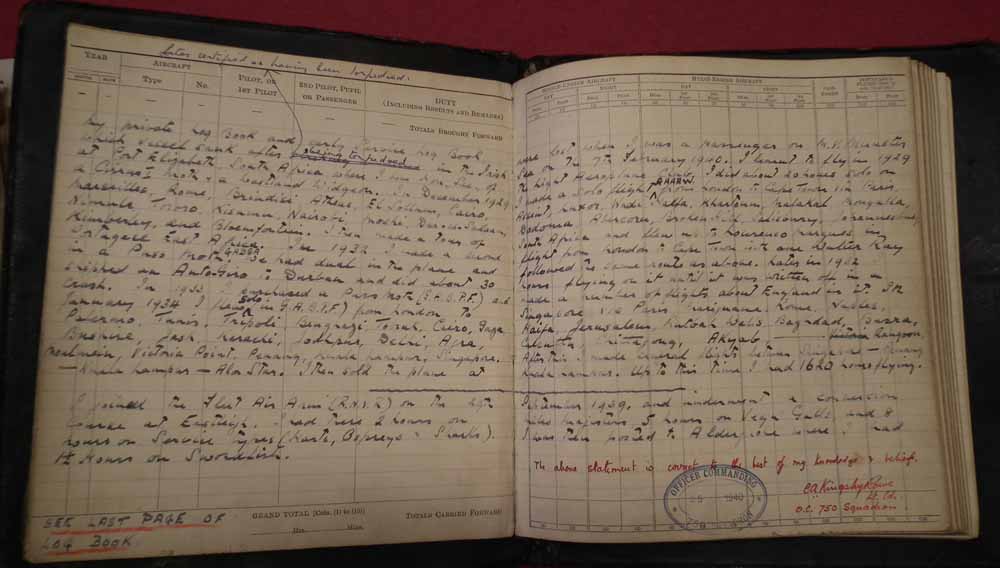 later certified as having been torpedoed.
YEAR
AIRCRAFT
Type
No.
PILOT, OR 1ST PILOT
2ND PILOT, PUPIL OR PASSENGER
DUTY (INCLUDING RESULTS AND REMARKS)
TOTALS BROUGHT FORWARD
My private Log Book and early Service Log Book
which vessel sank after being torpedoed in the Irish
at Port Elizabeth South Africa where I was Hon. Sec. of
a Cirrus moth & a Westland Widgeon. In December 1929
Marseilles, Rome, Brindisi, Athens, El Sollum, Cairo,
Nimule, Tororo, Kisumu, Nairobi, Moshi, Dar-es-Salaam,
Kimberley, and Bloemfontein. I then made a tour of
Portuguese East Africa. In 1932 I made a second
in a Puss Moth. We had dual in the plane and
shipped an AutoGiro to Durban and did about 30
crash. In 1933 I purchased a Puss Moth (G.A.B.P.F.) and
January 1934 I flew solo (in G.A.B.P.F.) from London to
Palermo, Tunis, Tripoli, Benghazi, Tobruk, Cairo, Gaza
Bushire, Jask, Karachi, Jodhpur, Delhi, Agra,
Moulmein, Victoria Point, Penang, Kuala Lumpur, Singapore.
— Kuala Lumpur — Alor Star. I then sold the plane at
I joined the Fleet Air Arm (R.N.V.R) on the 4th
Course at Eastleigh. I had here 2 hours on
hours on Service types (Harts, Ospreys & Sharks).
1½ Hours on Swordfish.
SEE LAST PAGE OF
LOG BOOK.
GRAND TOTAL [Cols. (1) to (10)]
Hrs. Mins.
TOTALS CARRIED FORWARD
SINGLE-ENGINE AIRCRAFT
MULTI-ENGINE AIRCRAFT
DAY
NIGHT
DAY
NIGHT
were lost when I was a passenger on M.V. Munster
Sea on the 7th February 1940. I learnt to fly in 1929
the Light Aeroplane Club. I did about 20 hours solo on
I made a solo flight from London to Cape Town via Paris,
Luxor, Wadi Halfa, Khartoum, Malakal, Mongalla,
Dodoma, Abercorn, Broken Hill, Salisbury, Johannesburg,
South Africa and flew up to Lourenco Marques in
flight from London to Cape Town with one Walter Kay
followed the same route as above. Later in 1932 I
hours flying on it until it was written off in a
made a number of flights about England in it. In
Singapore via Paris, Marignane, Rome, Naples,
Haifa, Jerusalem, Rutbah Wells, Baghdad, Basra,
Calcutta, Chittagong, Akyab — Rangoon
After this I made several flights between Singapore — Penang
Kuala Lumpur. Up to this time I had 1620 hours flying.
September 1939, and underwent a conversion
Miles Magisters, 5 hours on Vega Gulls and 8
I was then posted to Aldergrove where I had
The above statement is correct to the best of my knowledge & belief.
OFFICER COMMANDING
1940
CA Kingsley Rowe
Lt. Cdr.
O.C. 750 Squadron.